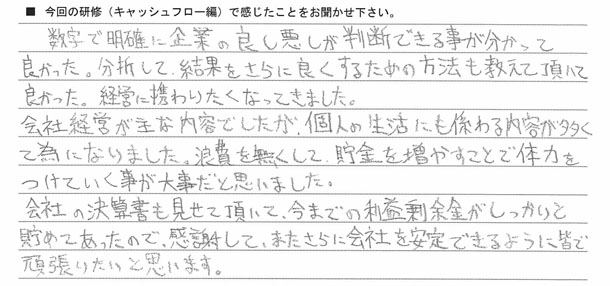 ■ 今回の研修（キャッシュフロー編）で感じたことをお聞かせ下さい。
数字で明確に企業の良し悪しが判断できる事が分かって
良かった。分析して、結果をさらに良くするための方法も教えて頂いて
良かった。経営に携わりたくなってきました。
会社経営が主な内容でしたが、個人の生活にも係わる内容が多く
て為になりました。浪費を無くして、貯金を増やすことで体力を
つけていく事が大事だと思いました。
会社の決算書も見せて頂いて、今までの利益剰余金がしっかりと
貯めてあったので、感謝して、またさらに会社を安定できるように皆で
頑張りたいと思います。